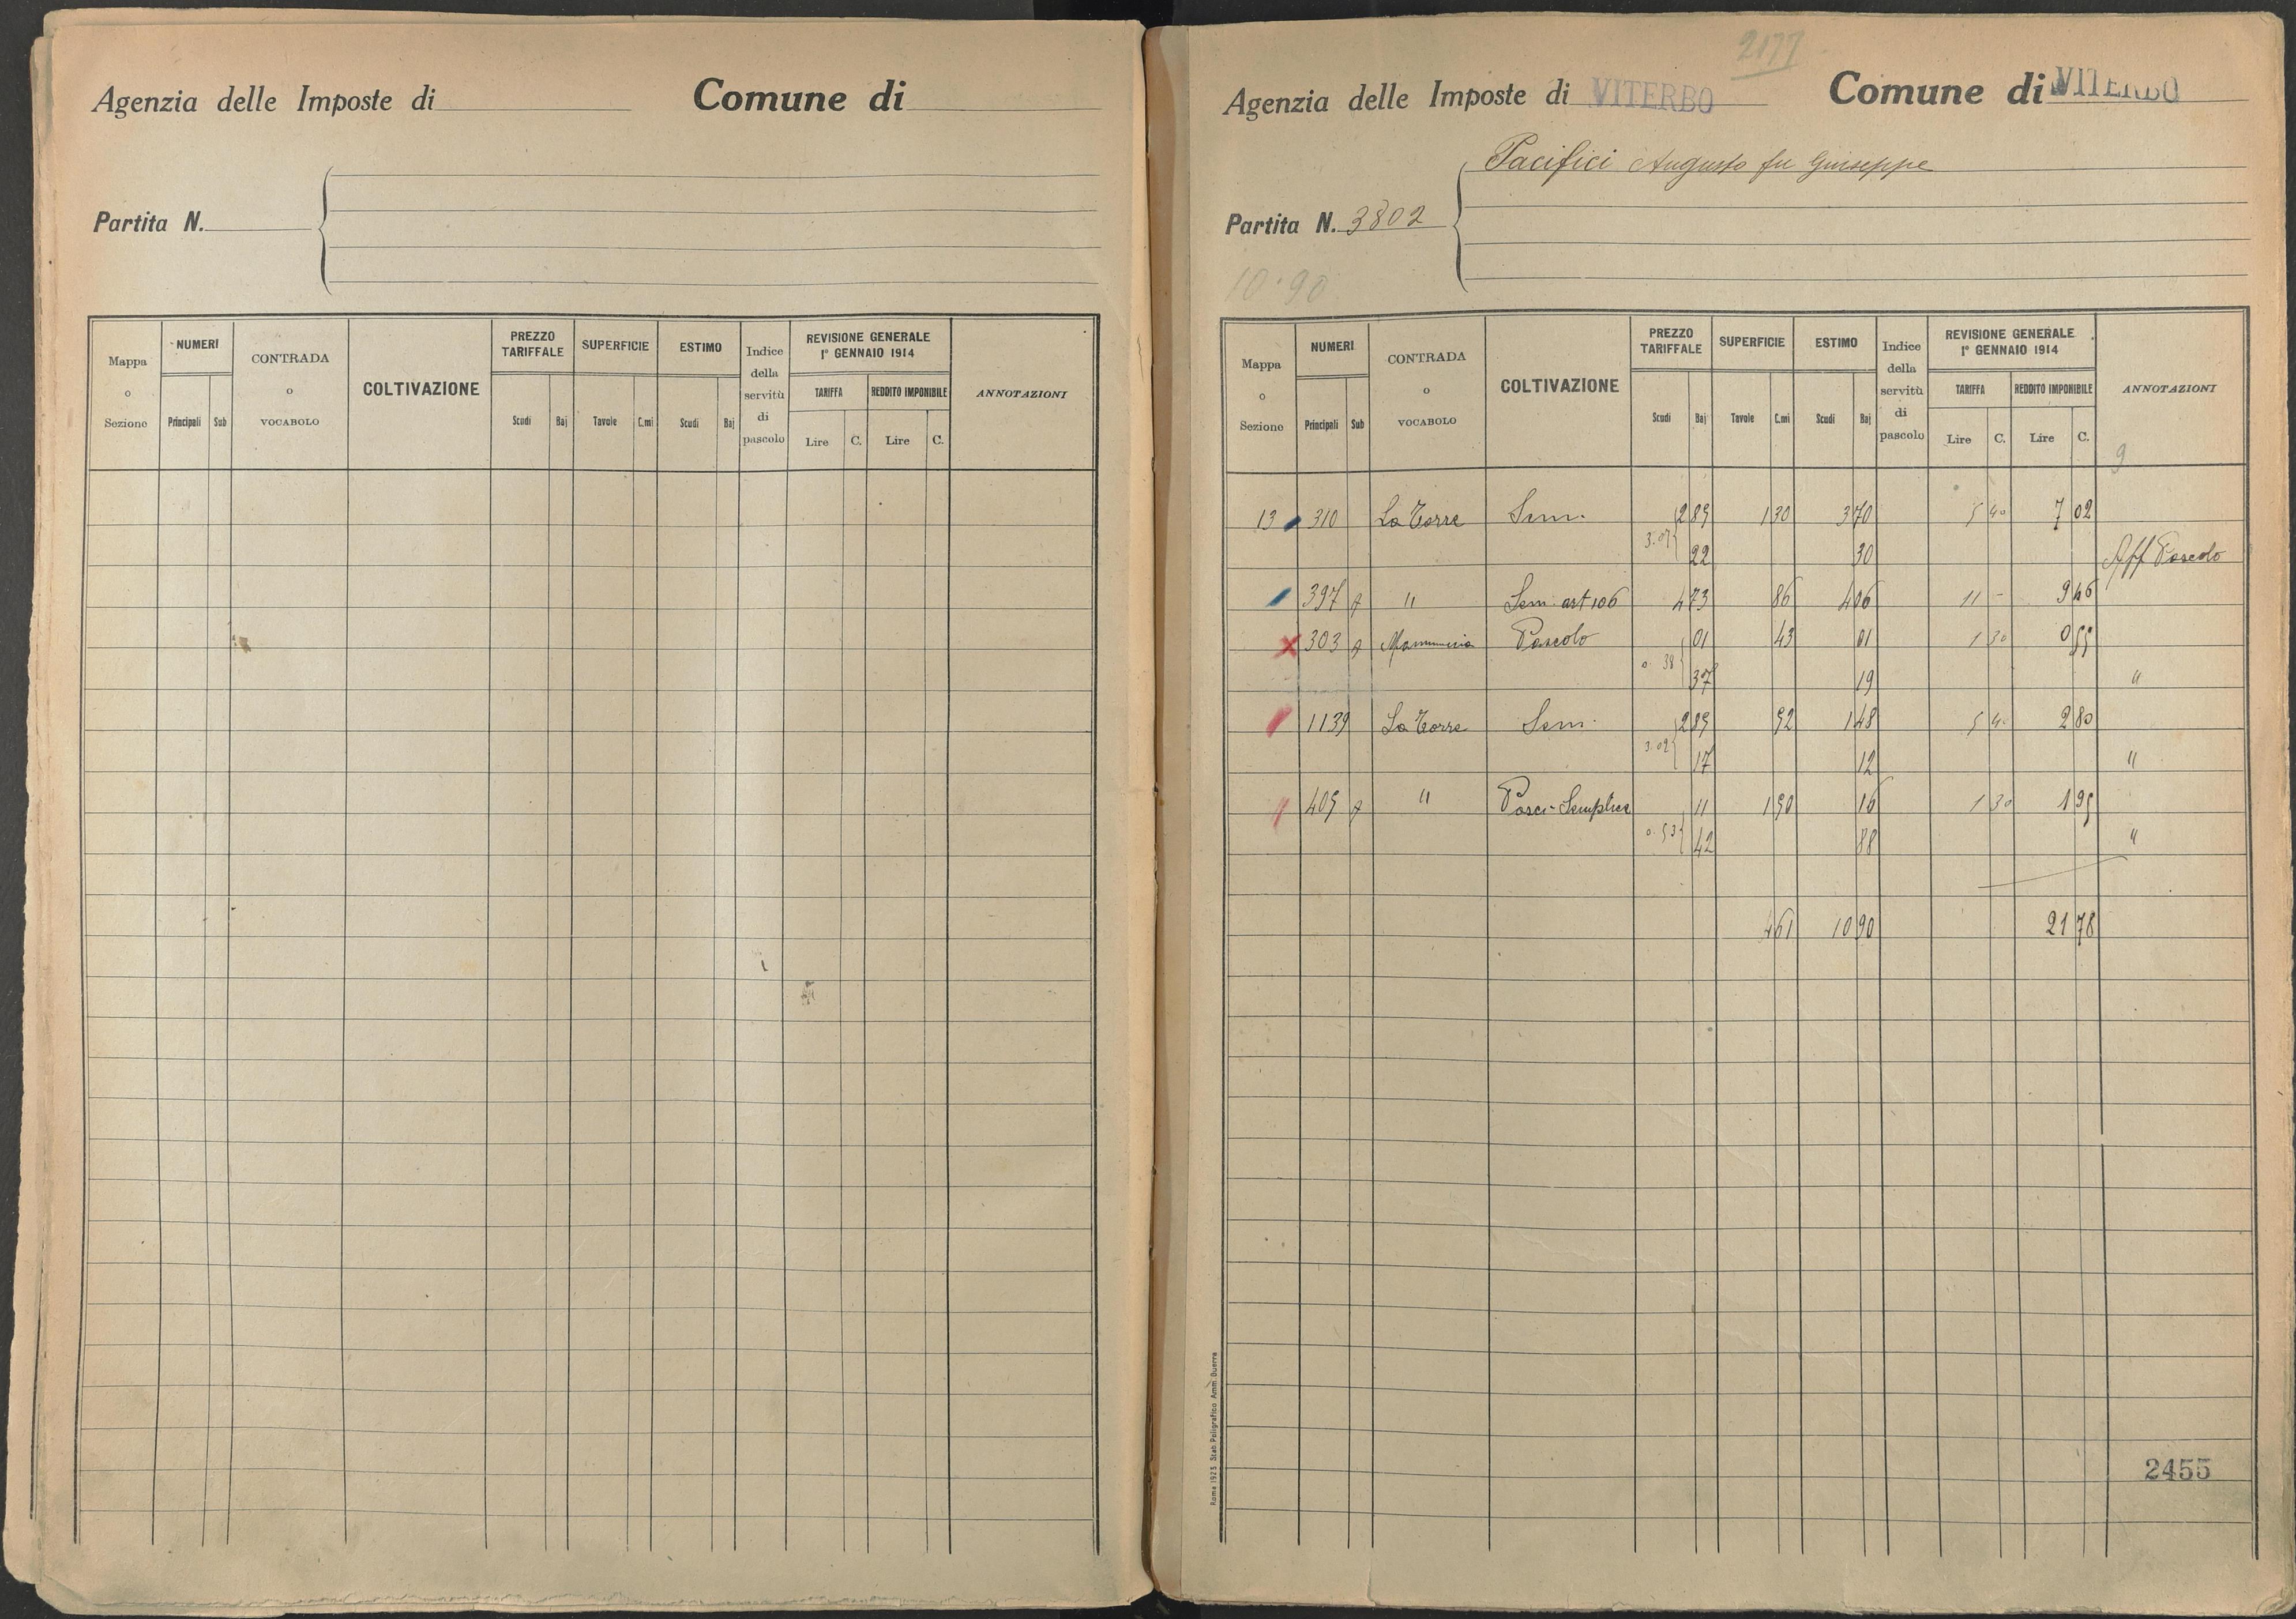 Agenzia delle Imposte di Comune di
Partita N.
Mappa o Sezione NUMERI CONTRADA o VOCABOLO COLTIVAZIONE PREZZO TARIFFALE SUPERFICIE ESTIMO Indice della servitù di pascolo REVISIONE GENERALE 1° GENNAIO 1914 ANNOTAZIONI
TARIFFA REDDITO IMPONIBILE
Principali Sub Scudi Baj Tavole C.mi Scudi Baj Lire C. Lire C.
2177
Agenzia delle Imposte di VITERBO Comune di VITERBO
Pacifici Augusto fu Giuseppe
Partita N. 3802
10.90
Mappa o Sezione NUMERI CONTRADA o VOCABOLO COLTIVAZIONE PREZZO TARIFFALE SUPERFICIE ESTIMO Indice della servitù di pascolo REVISIONE GENERALE 1° GENNAIO 1914 ANNOTAZIONI
TARIFFA REDDITO IMPONIBILE
Principali Sub Scudi Baj Tavole C.mi Scudi Baj Lire C. Lire C.
9
13 310 La Torre Sem. 2 85 1 30 3 70 5 40 7 02
22 30 Aff Pascolo
397 " Sem. art 106 4 73 86 4 06 11 - 9 46
303 Pascolo 01 43 01 1 30 0 55
0.38 37 19 "
1139 La Torre Sem. 2 85 52 1 48 5 40 2 80
3.02 17 12 "
405 " Pasc. Semplice 11 1 50 16 1 30 1 95
0.53 42 88 "
4 61 10 90 21 78
Roma 1925 Stab. Poligrafico Amm. Guerra
2455